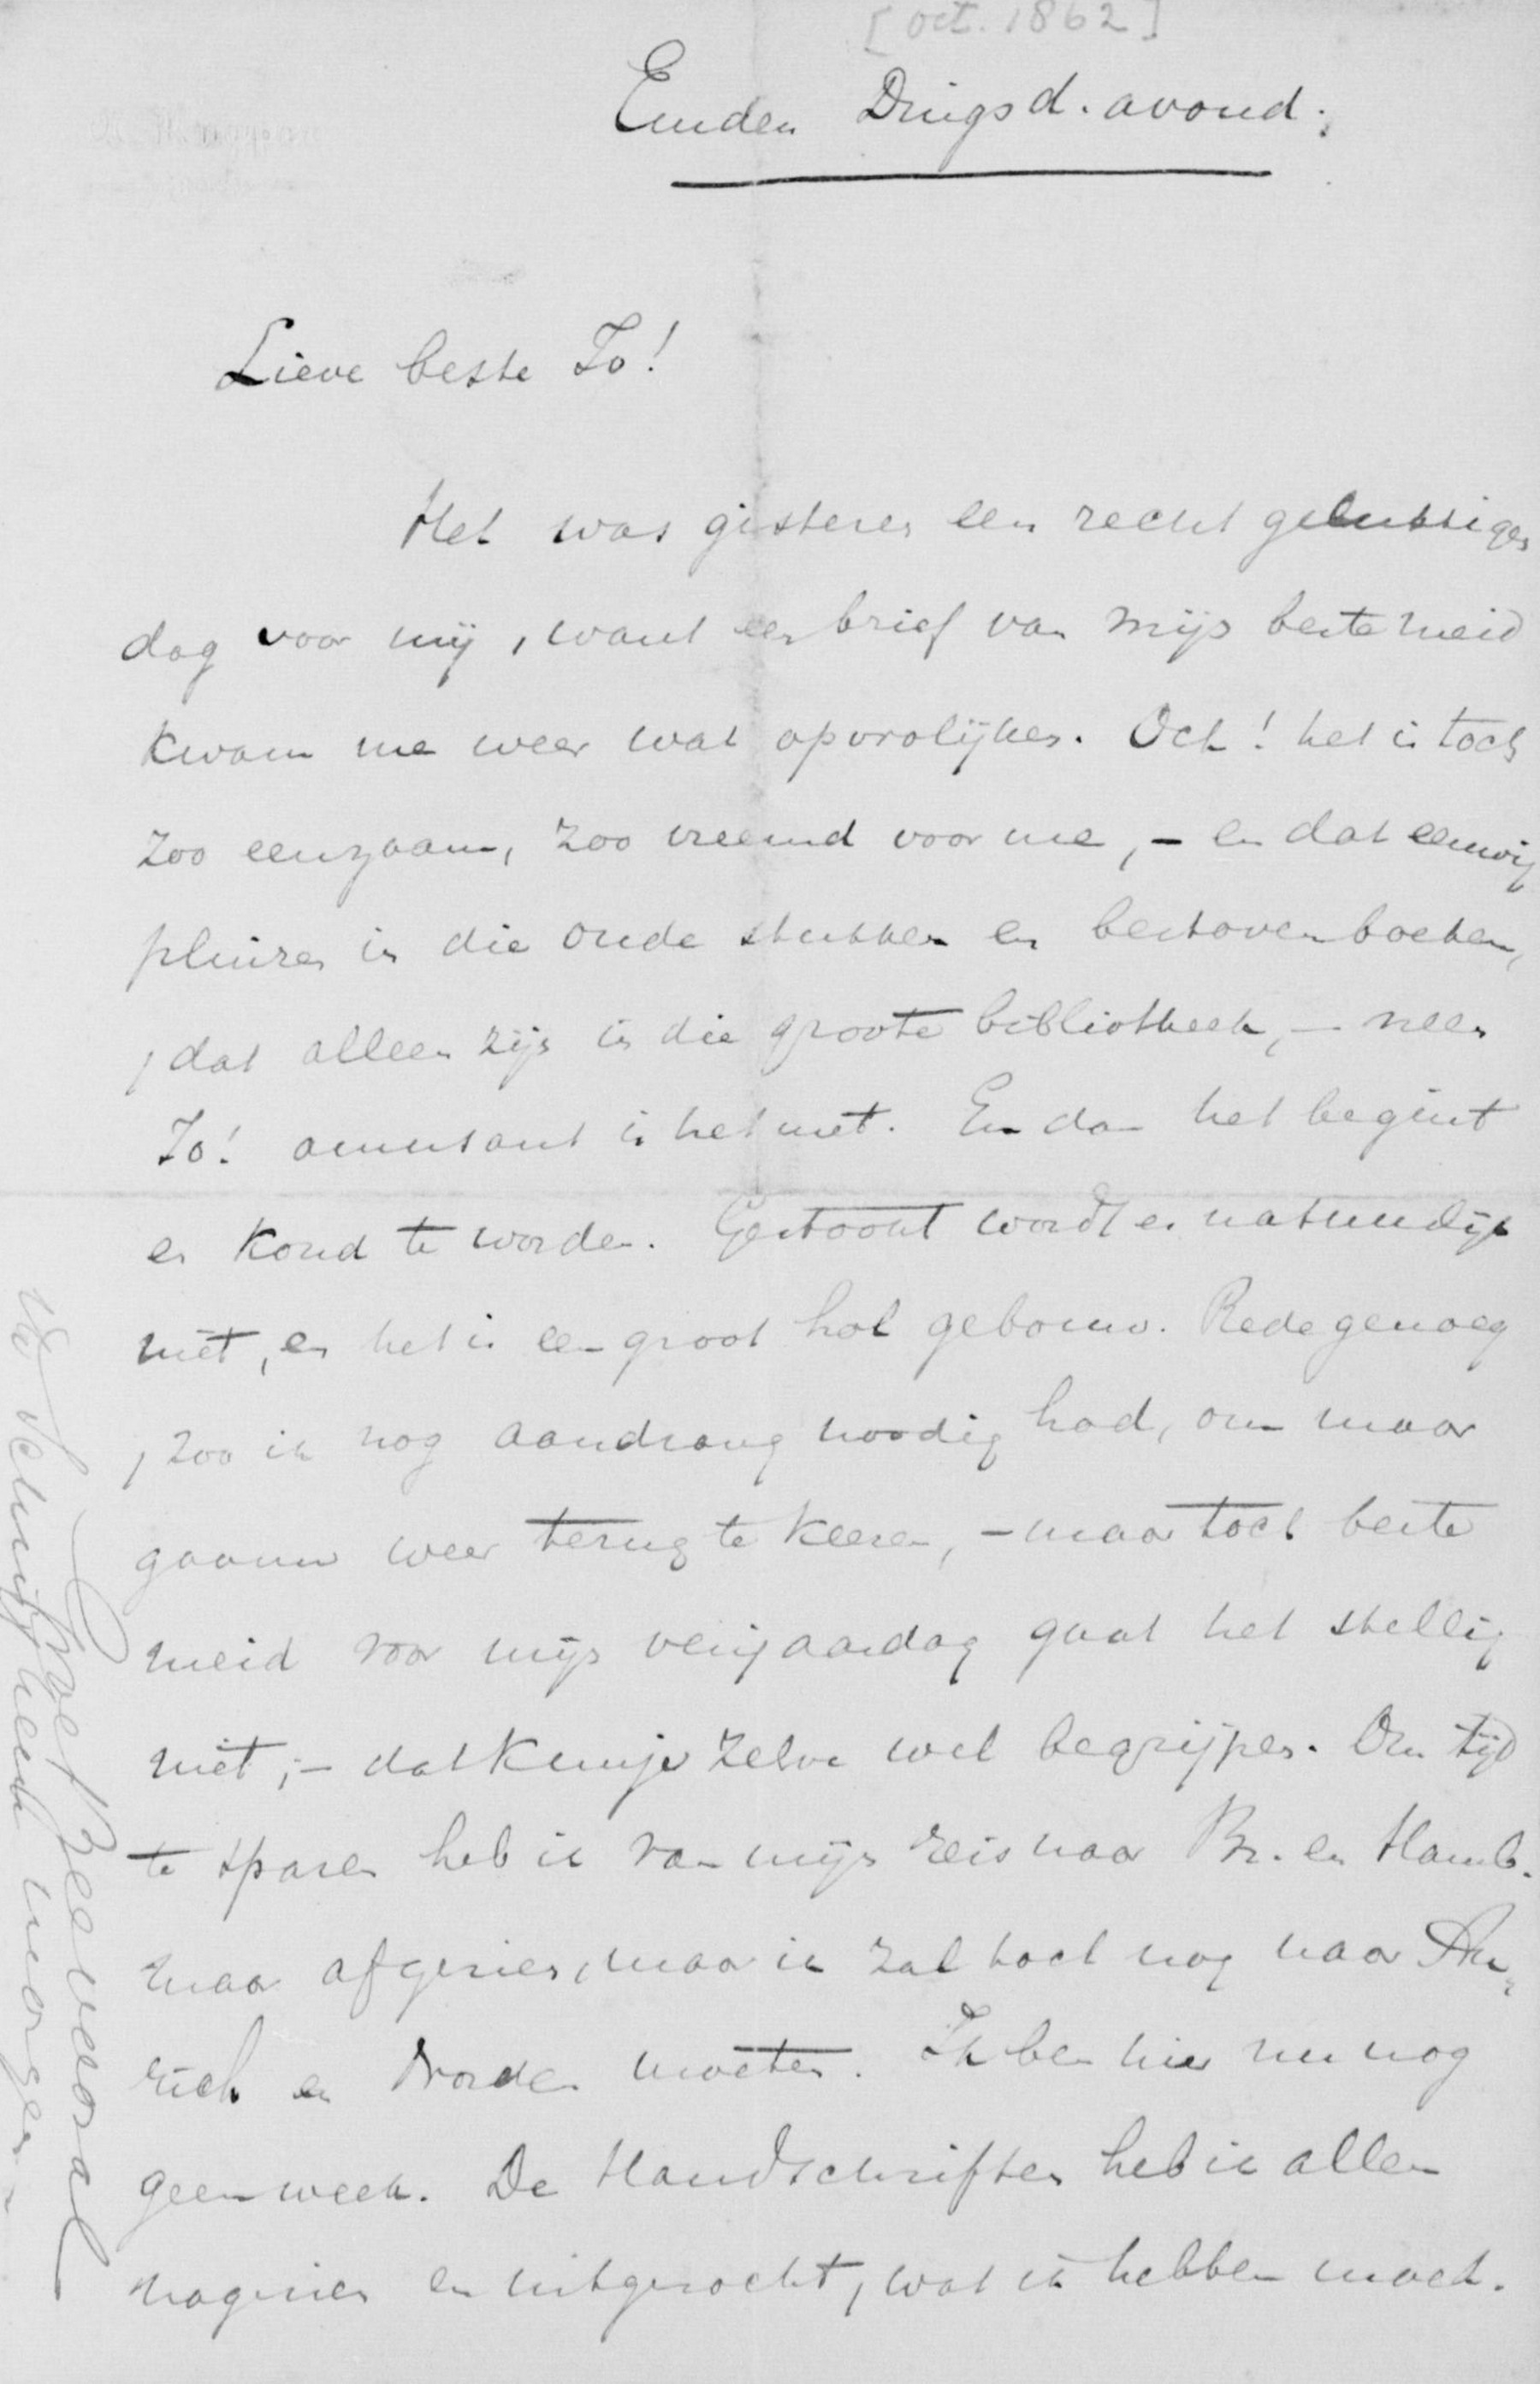 [oct. 1862]
Emden Dingsd. avond.
Lieve beste Jo!
Het was gisteren een recht gelukkigen
dag voor mij, want een brief van mijn beste meid
kwam me weer wat opvrolijken. Och! het is toch
zoo eenzaam, zoo vreemd voor me, - en dat eeuwig
pluizen in die oude stukken en bestoven boeken,
, dat alleen zijn in die groote bibliotheek, - neen
Jo! amusant is het niet. En dan het begint
er koud te worden. Gestookt wordt er natuurlijk
niet, en het is een groot hol gebouw. Rede genoeg
, zoo ik nog aandrang noodig had, om maar
gaauw weer terug te keeren, - maar toch beste
meid voor mijn verjaardag gaat het stellig
niet, - dat kunje zelve wel begrijpen. Om tijd
te sparen heb ik van mijn reis naar Br. en Hamb.
maar afgezien, maar ik zal toch nog naar Au-
rich en Norden moeten. Ik ben hier nu nog
geen week. De Handschriften heb ik allen
nagezien en uitgezocht, wat ik hebben moest.
schrijf morgen